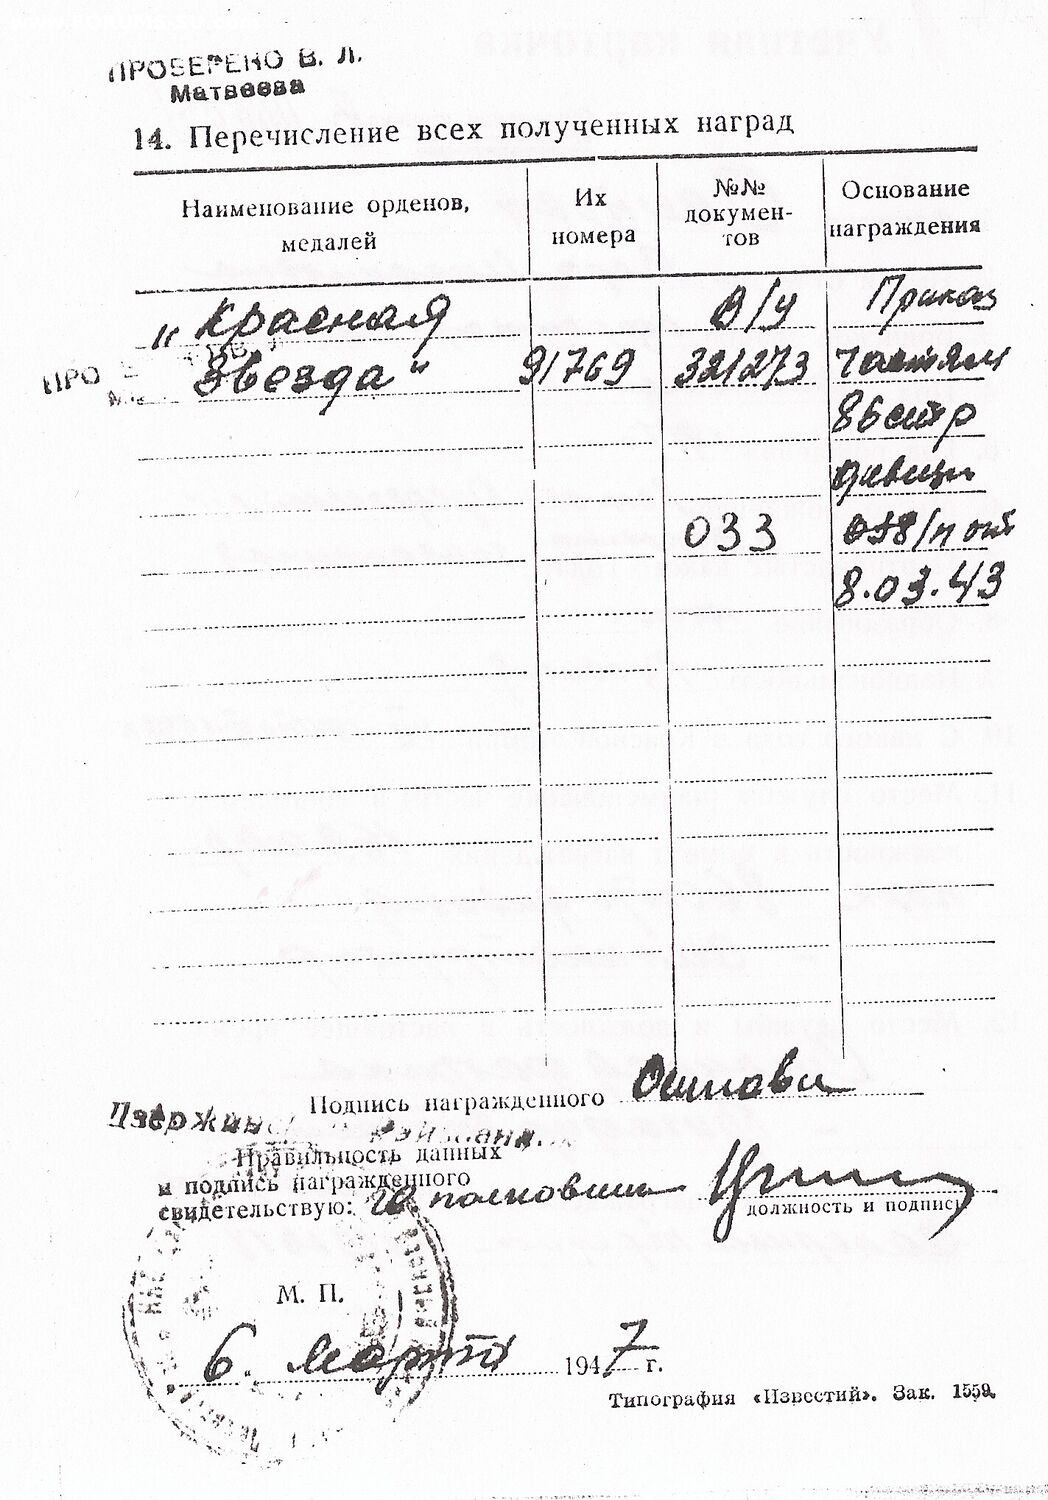 ПРОВЕРЕНО В. Л.
Матвеева
14. Перечисление всех полученных наград
Наименование орденов, медалей
Их номера
№№ документов
Основание награждения
„Красная В/У Приказ
Звезда“ 91769 321273 частям
86 стр
дивизии
033 038/н от
8.03.43
ПРО
Подпись награжденного
Дзержинс
Правильность данных
и подпись награжденного
свидетельствую:
должность и подпись
М. П.
6. марта 1947 г.
Типография «Известий». Зак. 1559.